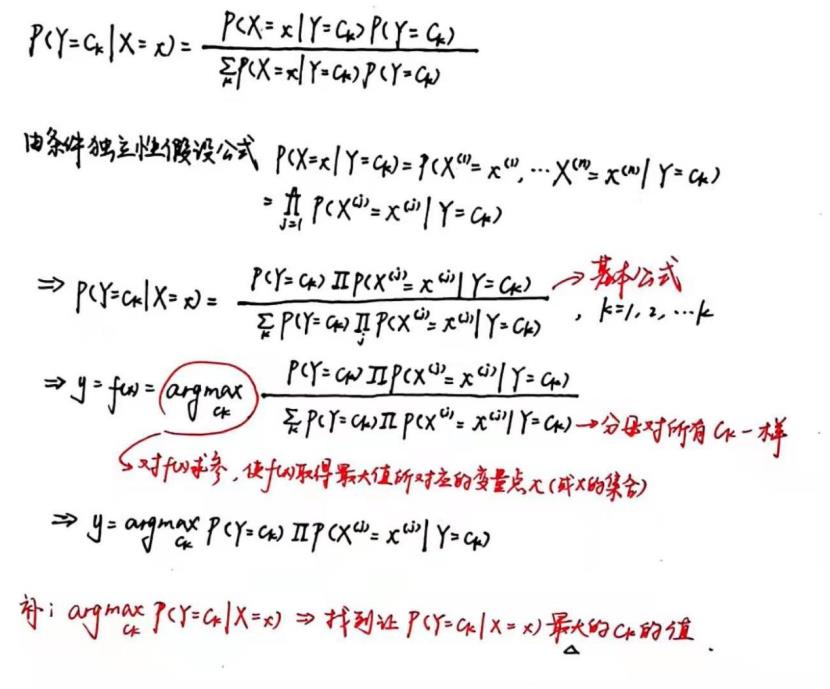 P(Y=Cₖ|X=x) = P(X=x|Y=Cₖ)P(Y=Cₖ) / Σₖ P(X=x|Y=Cₖ)P(Y=Cₖ)
由条件独立性假设公式 P(X=x|Y=Cₖ)=P(X⁽¹⁾=x⁽¹⁾,⋯X⁽ⁿ⁾=x⁽ⁿ⁾|Y=Cₖ)
= ∏ⱼ₌₁ⁿ P(X⁽ʲ⁾=x⁽ʲ⁾|Y=Cₖ)
⇒ P(Y=Cₖ|X=x) = P(Y=Cₖ)∏P(X⁽ʲ⁾=x⁽ʲ⁾|Y=Cₖ) / Σₖ P(Y=Cₖ)∏ⱼ P(X⁽ʲ⁾=x⁽ʲ⁾|Y=Cₖ) → 基本公式 , k=1,2,⋯k
⇒ y=f(x)= argmax Cₖ P(Y=Cₖ)∏P(X⁽ʲ⁾=x⁽ʲ⁾|Y=Cₖ) / Σₖ P(Y=Cₖ)∏P(X⁽ʲ⁾=x⁽ʲ⁾|Y=Cₖ) → 分母对所有Cₖ一样
↳ 对f(x)求参,使f(x)取得最大值所对应的变量点x(或x的集合)
⇒ y=argmax Cₖ P(Y=Cₖ)∏P(X⁽ʲ⁾=x⁽ʲ⁾|Y=Cₖ)
补: argmax Cₖ P(Y=Cₖ|X=x) ⇒ 找到让 P(Y=Cₖ|X=x) 最大的Cₖ的值.